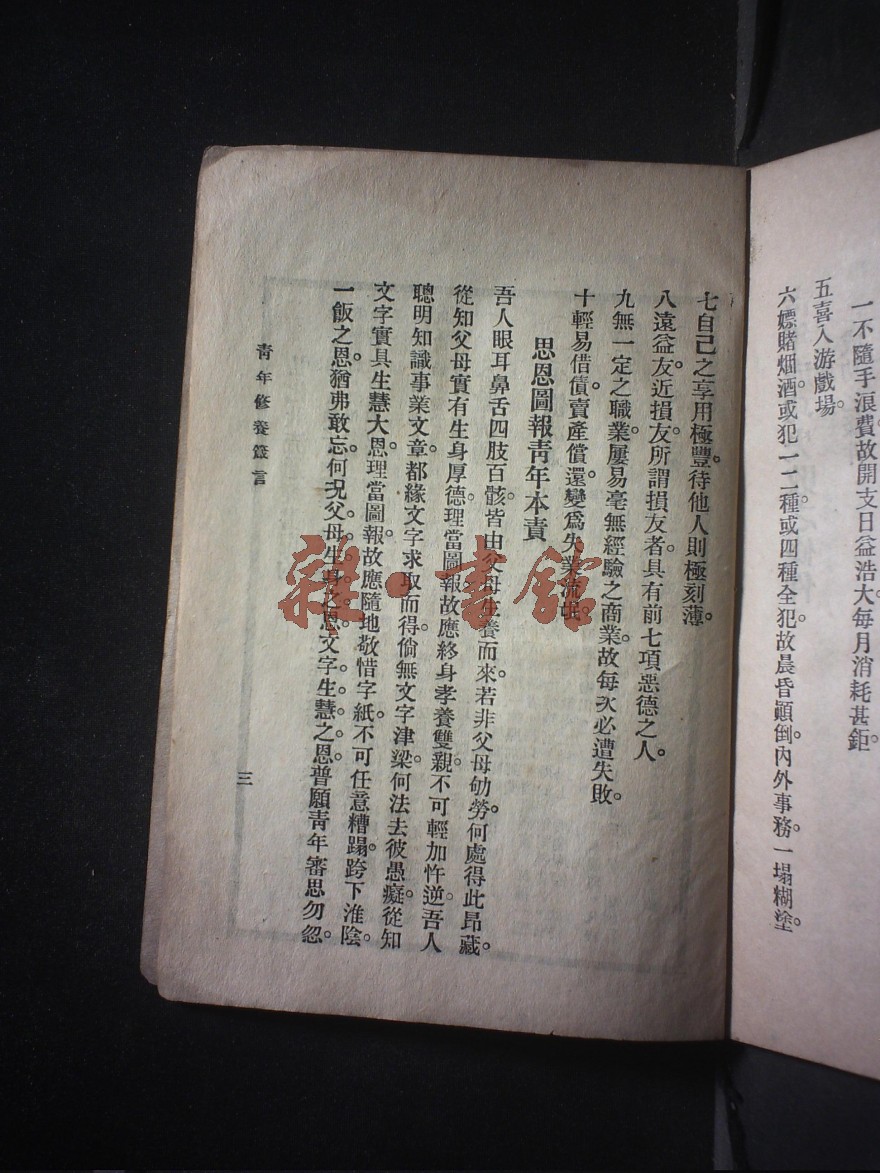 一不隨手浪費。故開支日益浩大。每月消耗甚鉅。
五喜入游戲場。
六嫖賭烟酒。或犯一二種。或四種全犯。故晨昏顚倒。內外事務。一塌糊塗。
七自己之享用極豐。待他人則極刻薄。
八遠益友。近損友。所謂損友者。具有前七項惡德之人。
九無一定之職業。屢易毫無經驗之商業。故每次必遭失敗。
十輕易借債。賣產償還。變爲失業流氓。
思恩圖報靑年本責
吾人眼耳鼻舌四肢百骸。皆由父母生養而來。若非父母劬勞。何處得此昂藏。
從知父母實有生身厚德。理當圖報。故應終身孝養雙親。不可輕加忤逆。吾人
聰明知識事業文章。都緣文字求取而得。倘無文字津梁。何法去彼愚癡。從知
文字實具生慧大恩。理當圖報。故應隨地敬惜字紙。不可任意糟蹋。跨下淮陰。
一飯之恩。猶弗敢忘。何況父母生身之恩。文字生慧之恩。普願靑年審思勿忽。
靑年修養箴言
三
雜·書館